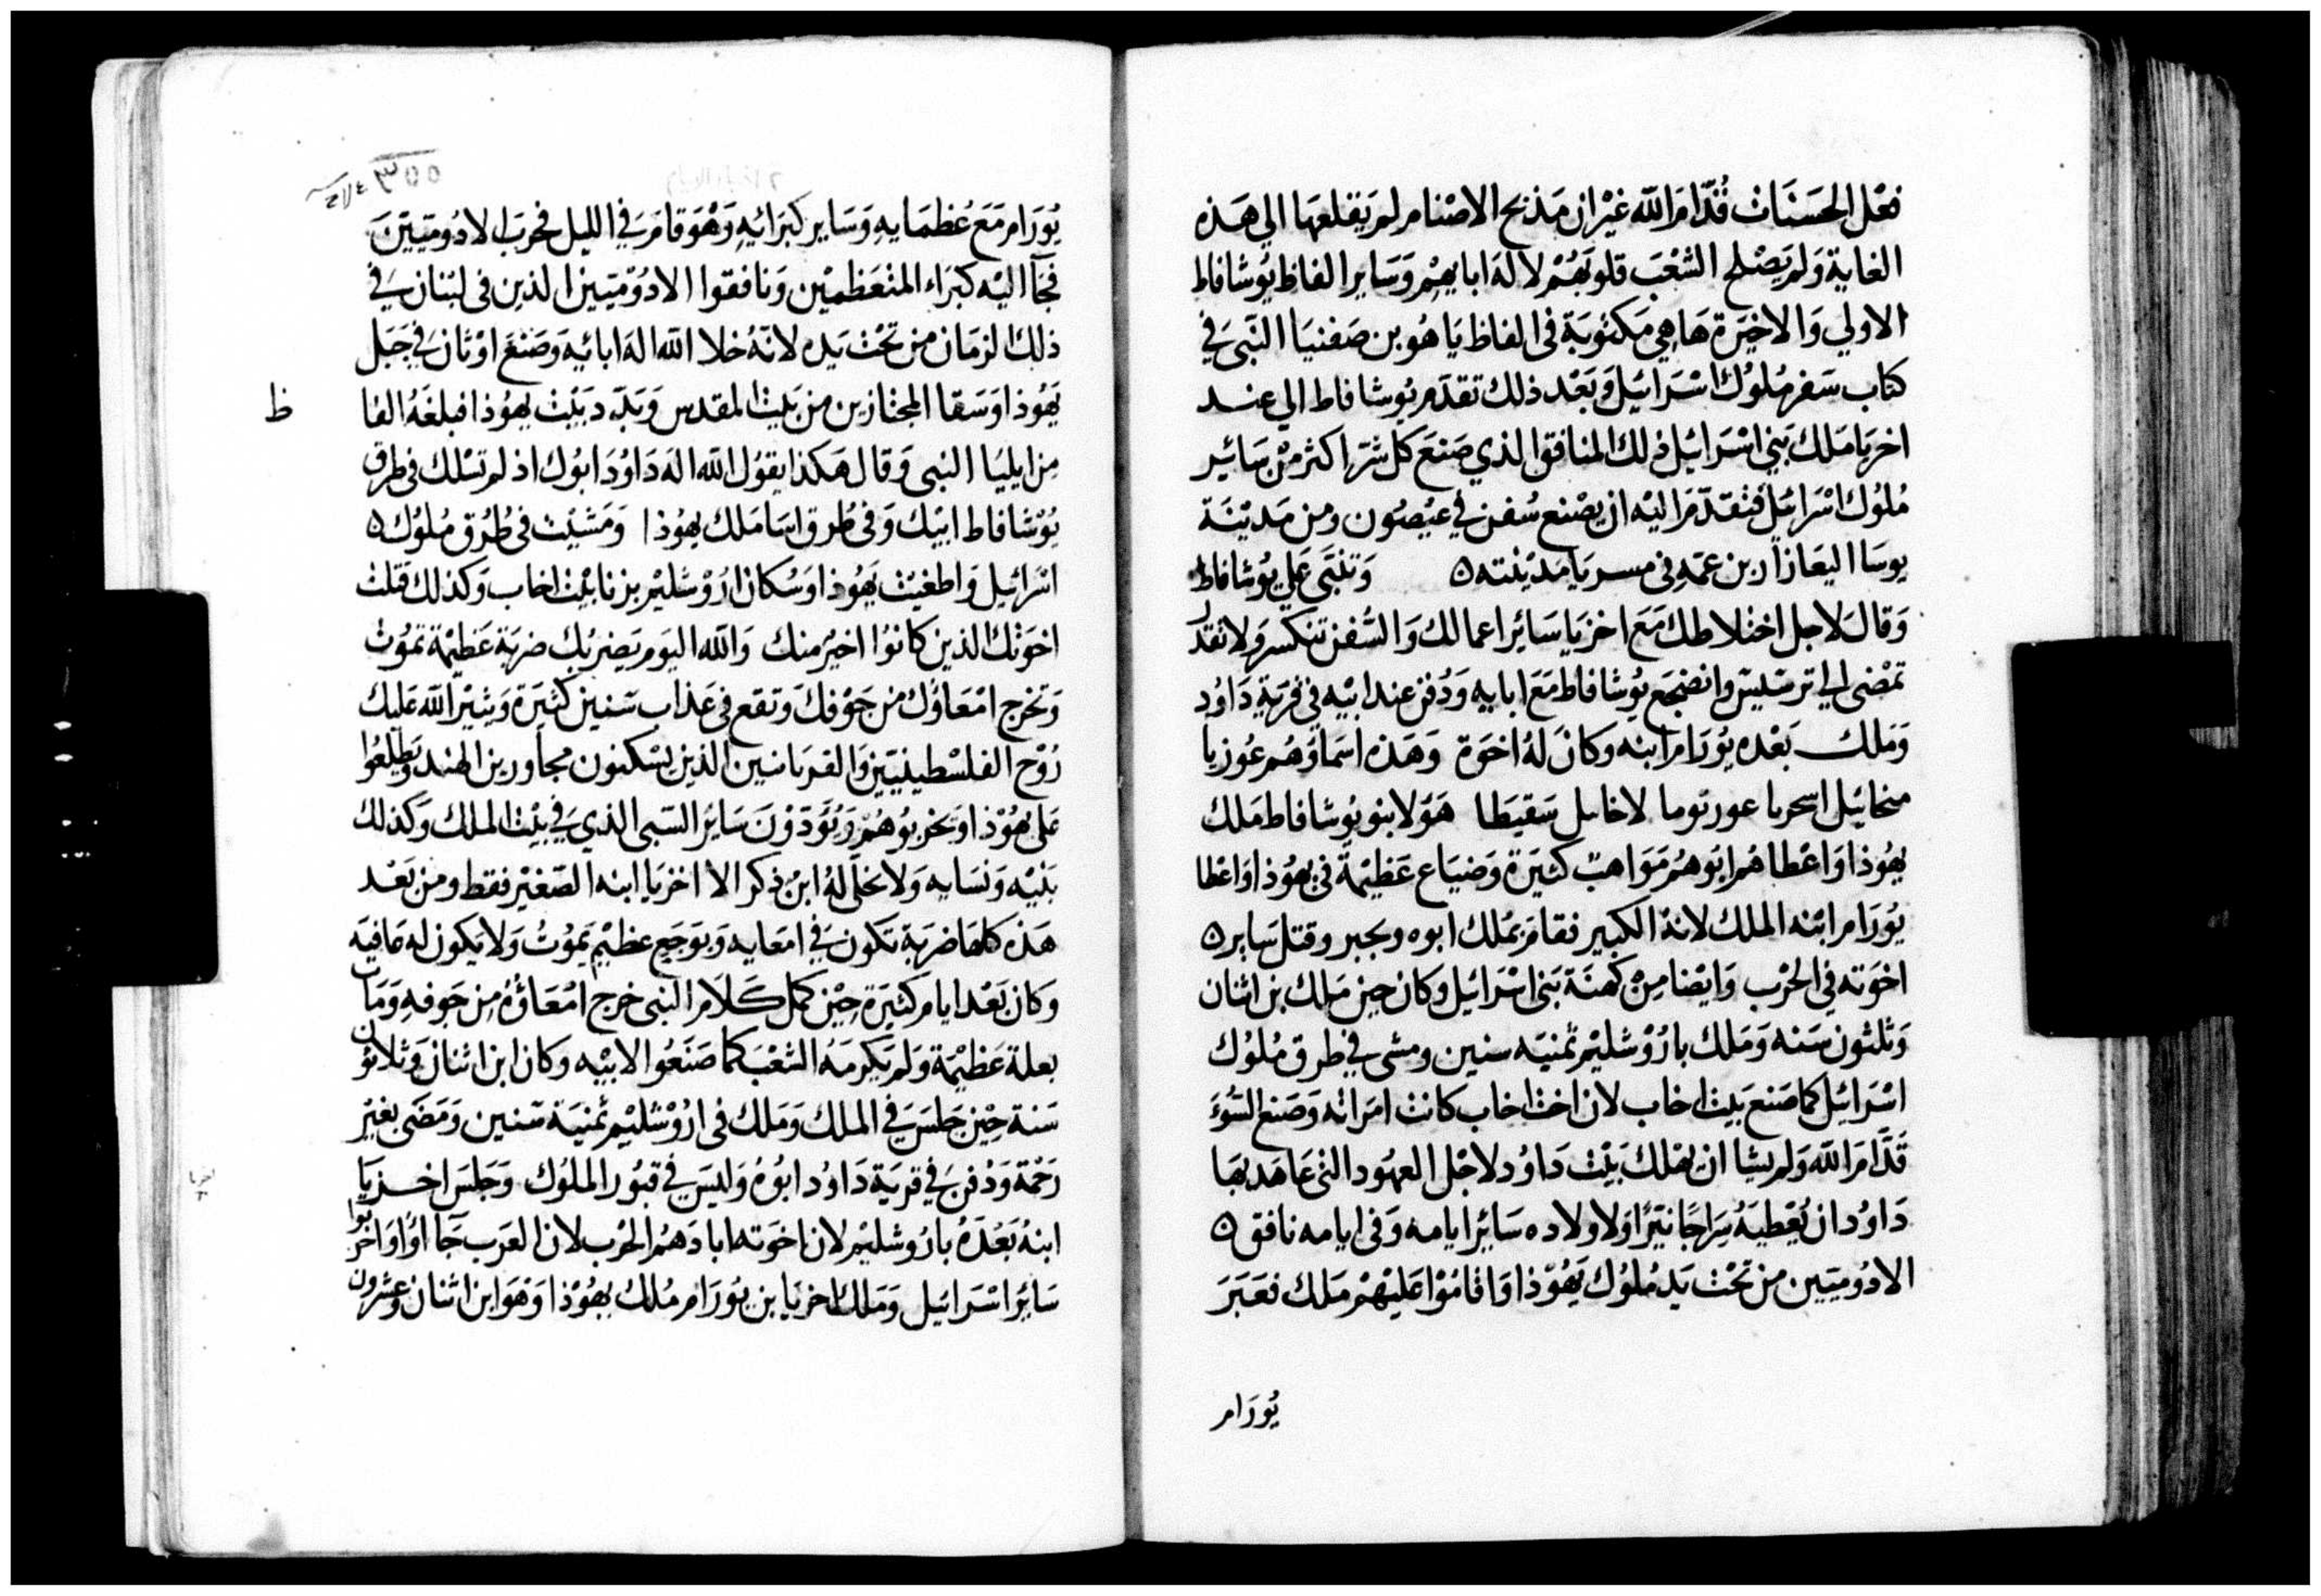 فعل الحسنات قدام الله غير ان مذبح الاصنام لم يقلعها الي هذه
الغاية ولم يصلح الشعب قلوبهم لاله ابايهم وساير الفاظ يوشافاط
الاولي والاخيرة هاهي مكتوبة في الفاظ ياهو بن صفنيا النبي في
كتاب سفر ملوك اسرائيل وبعد ذلك تقدم يوشافاط الي عند
اخزيا ملك بني اسرائيل ذلك المنافق الذي صنع كل شر اكثر من سائر
ملوك اسرائيل فتقدم اليه ان يصنع سفن في عيصون ومن مدينة
يوسا اليعازار بن عمه في مسريا مدينته ۵ وتنبي علي يوشافاط
وقال لاجل اختلاطك مع اخزيا سائر اعمالك والسفن تنكسر ولا تقدر
تمضي الي ترسيس وانضجع يوشافاط مع ابايه ودفن عند ابيه في قرية داود
وملك بعده يورام ابنه وكان له اخوة وهذه اسماؤهم عوزيا
منحائيل اسحريا عورتوما لاخايل سقيطا هؤلا بنو يوشافاط ملك
يهوذا واعطاهم ابوهم مواهب كثيرة وضياع عظيمة في يهوذا واعطا
يورام ابنه الملك لانه الكبير فقام بملك ابوه وبجبر وقتل ساير ۵
اخوته في الحرب وايضا من كهنة بني اسرائيل وكان حين ملك بن اثنان
وثلثون سنه وملك باروشليم ثمنيه سنين ومشي في طرق ملوك
اسرائيل كما صنع بيت اخاب لان اخت اخاب كانت امراته وصنع السوء
قدام الله ولم يشا ان يهلك بيت داود لاجل العهود التي عاهد بها
داود ان يعطيه سراجا نيرا ولاولاده سائر ايامه وفي ايامه نافق ۵
الادوميين من تحت يد ملوك يهوذا واقاموا عليهم ملك فعبر
يورام
يورام مع عظمايه وساير كبرائيه وهو قام في الليل فحرب الادوميين
فجاا اليه كبراء المتعظمين ونافقوا الادوميين الذين في لبنان في
ذلك الزمان من تحت يده لانه خلا الله اله ابائيه وصنع اوثان في جبل
يهوذا وسقا المجتازين من بيت المقدس وبدد بيت يهوذا فبلغه الفا
ظ
من ايليا النبي وقال هكذا يقول الله اله داود ابوك اذ لم تسلك في طرق
يوشافاط ابيك وفي طرق اسا ملك يهوذا ومشيت في طرق ملوك ۵
اسرائيل واطغيت يهوذا وسكان اروشليم بزنا بيت اخاب وكذلك قتلت
اخوتك الذين كانوا اخير منك والله اليوم يضربك ضربة عظيمة تموت
وتخرج امعاؤك من جوفك وتقع في عذاب سنين كثيرة ويثير الله عليك
روح الفلسطينيين والقربانيين الذين يسكنون مجاورين الهند ويطلعوا
علي يهوذا ويخربوهم ويؤدون سائر السبي الذي في بيت الملك وكذلك
بنيه ونسايه ولا يخلي له ابن ذكر الا اخزيا ابنه الصغير فقط ومن بعد
هذه كلها ضربة تكون في امعايه وبوجع عظيم يموت ولا يكون له عافيه
وكان بعد ايام كثيرة حين كمل كلام النبي خرج امعاؤه من جوفه ومات
بعلة عظيمة ولم يكرمه الشعب كما صنعوا لابيه وكان ابن اثنان وثلاثون
سنة حين جلس في الملك وملك في اروشليم ثمنية سنين ومضي بغير
رحمة ودفن في قرية داود ابوه وليس في قبور الملوك وجلس اخزيا
ابنه بعده باروشليم لان اخوته ابادهم الحرب لان العرب جااوا واخربوا
سائر اسرائيل وملك اخزيا بن يورام ملك يهوذا وهو ابن اثنان وعشرون